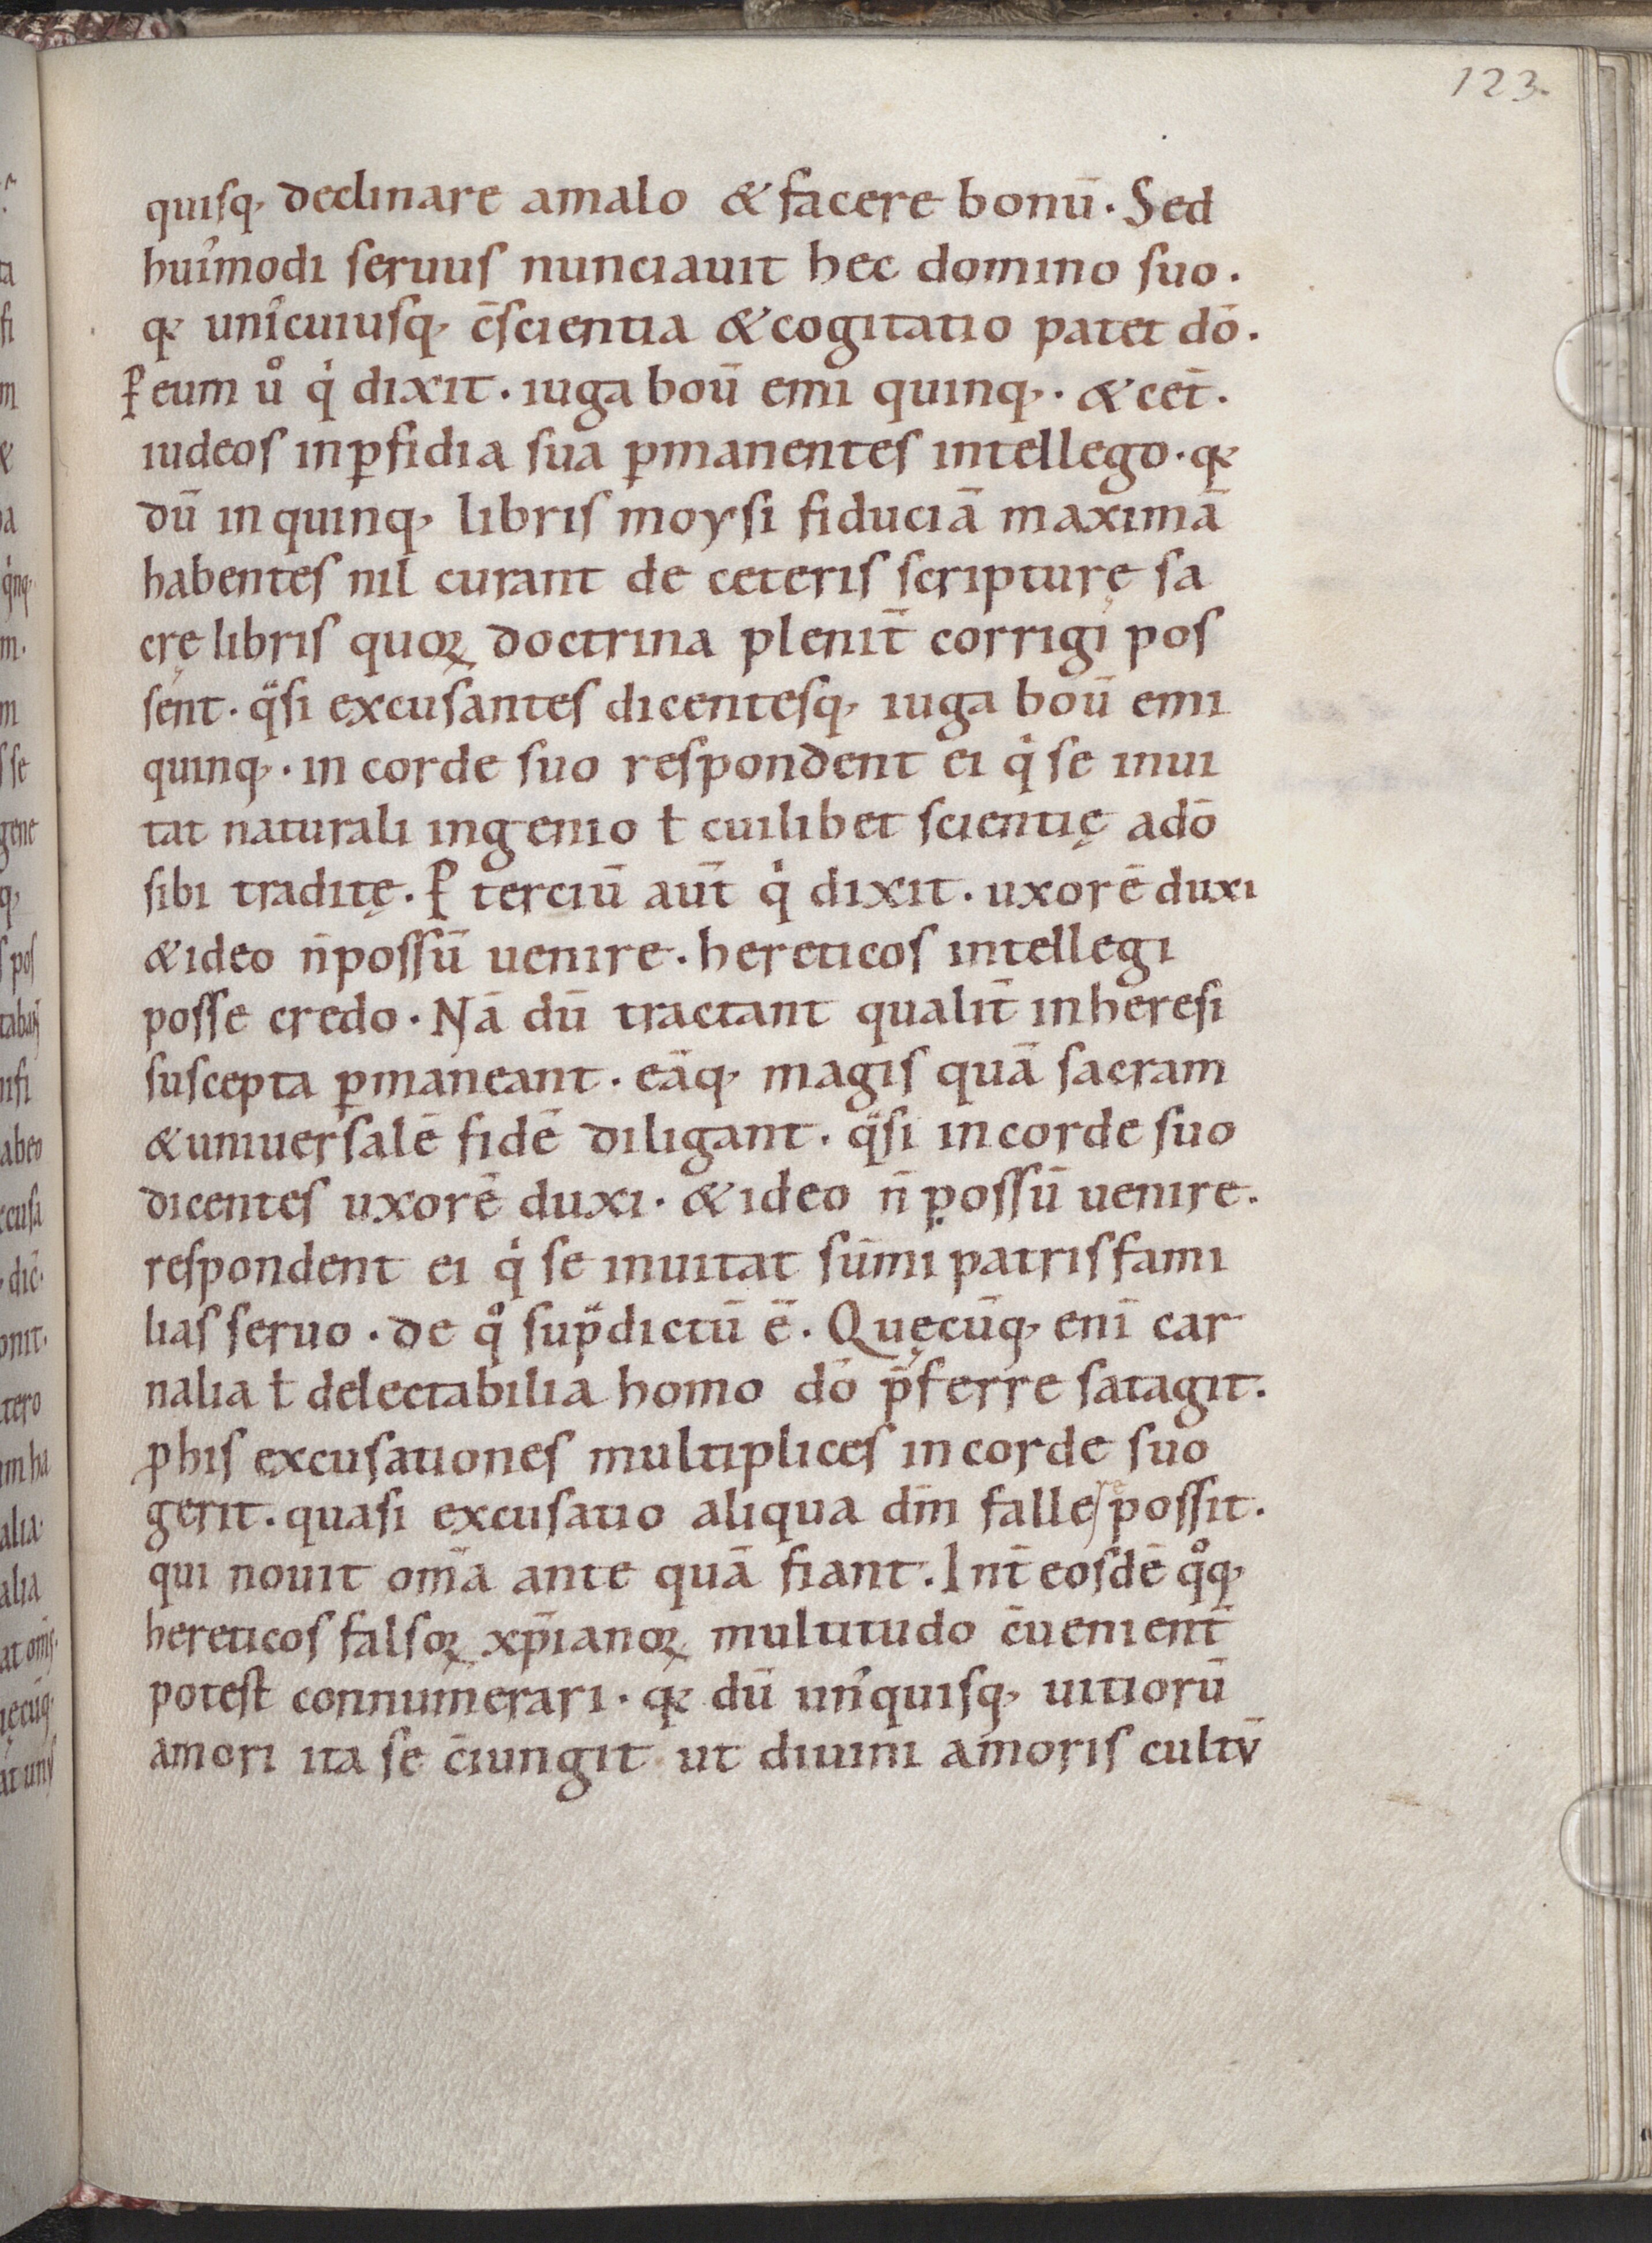 123.
quisq, declinare amalo & facere bonū. Sed
hui᾽modi seruus nunciauit hec domino suo.
qꝛ uni᾽cuiusq, c̄scientia & cogitatio patet dō.
P̄ eum uͦ qͥ dixit. iuga boū emi quinq,. & cet̄.
iudeos inꝑfidia sua ꝑmanentes intellego. qꝛ
dū in quinq, libris moysi fiduciā maximā
habentes nil curant de ceteris scripturę sa
crę libris quoꝝ doctrina plenit̄ corrigi pos
sent. qͣsi excusantes dicentesq, iuga boū emi
quinq,. in corde suo respondent ei qͥ se inui
tat naturali ingenio ł cuilibet scientię adō
sibi traditę. P̄ terciū aut̄ qͥ dixit. uxorē duxi
& ideo n̄ possū uenire. hereticos intellegi
posse credo. Nā dū tractant qualit̄ inheresi
suscepta ꝑmaneant. eāq, magis quā sacram
& uniuersalē fidē diligant. qͣsi incorde suo
dicentes uxorē duxi. & ideo n̄ possū uenire.
respondent ei qͥ se inuitat sūmi patrisfami
lias seruo. de qͦ supͣdictū ē. Quęcūq, enī car
nalia ł delectabilia homo dō p̄ferre satagit.
ꝓhis excusationes multiplices in corde suo
gerit. quasi excusatio aliqua dm̄ fallere possit.
qui nouit om̄a ante quā fiant. Int̄ eosdē qͦq,
hereticos falsoꝝ xp̄ianoꝝ multitudo c̄uenient̄
potest connumerari. qꝛ dū un᾽quisq, uitiorū
amori ita se c̄iungit ut diuini amoris cultū